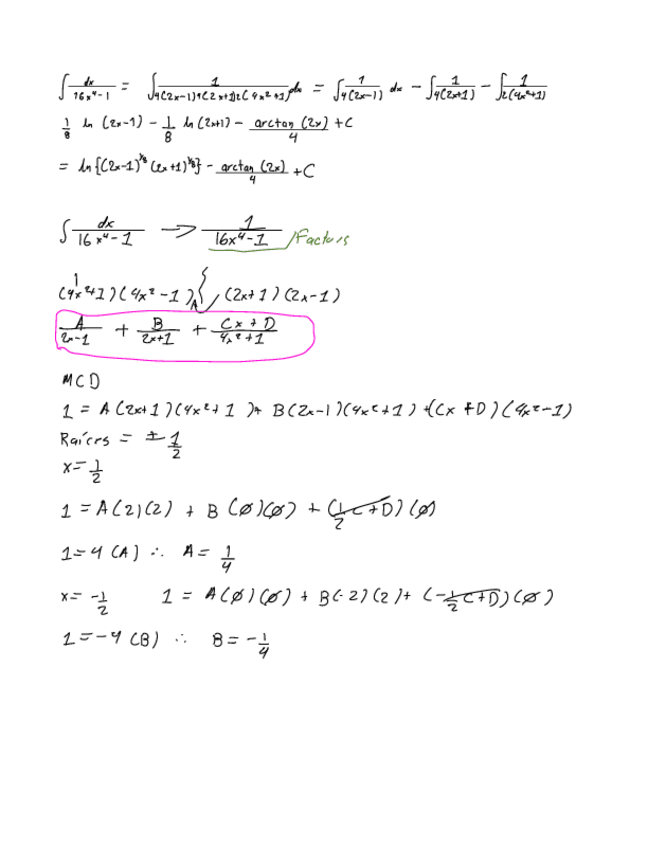 ∫ dx/(16x⁴-1) = ∫ 1/(4(2x-1)4(2x+1)2(4x²+1)) dx = ∫ 1/(4(2x-1)) dx - ∫ 1/(4(2x+1)) - ∫ 1/(2(4x²+1))
1/8 ln (2x-1) - 1/8 ln (2x+1) - arctan (2x)/4 + C
= ln{(2x-1)^⅛ (2x+1)^⅛} - arctan (2x)/4 + C
∫ dx/(16x⁴-1) → 1/(16x⁴-1) /Factors
1
(4x²+1)(4x²-1) (2x+1)(2x-1)
A/(2x-1) + B/(2x+1) + (Cx+D)/(4x²+1)
MCD
1 = A(2x+1)(4x²+1)+ B(2x-1)(4x²+1) +(Cx+D)(4x²-1)
Raíces = ± 1/2
x= 1/2
1 = A(2)(2) + B(0)(0) + (1/2 C+D)(0)
1=4(A) ∴ A= 1/4
x= -1/2 1 = A(0)(0) + B(-2)(2)+ (-1/2 C+D)(0)
1=-4(B) ∴ B=-1/4